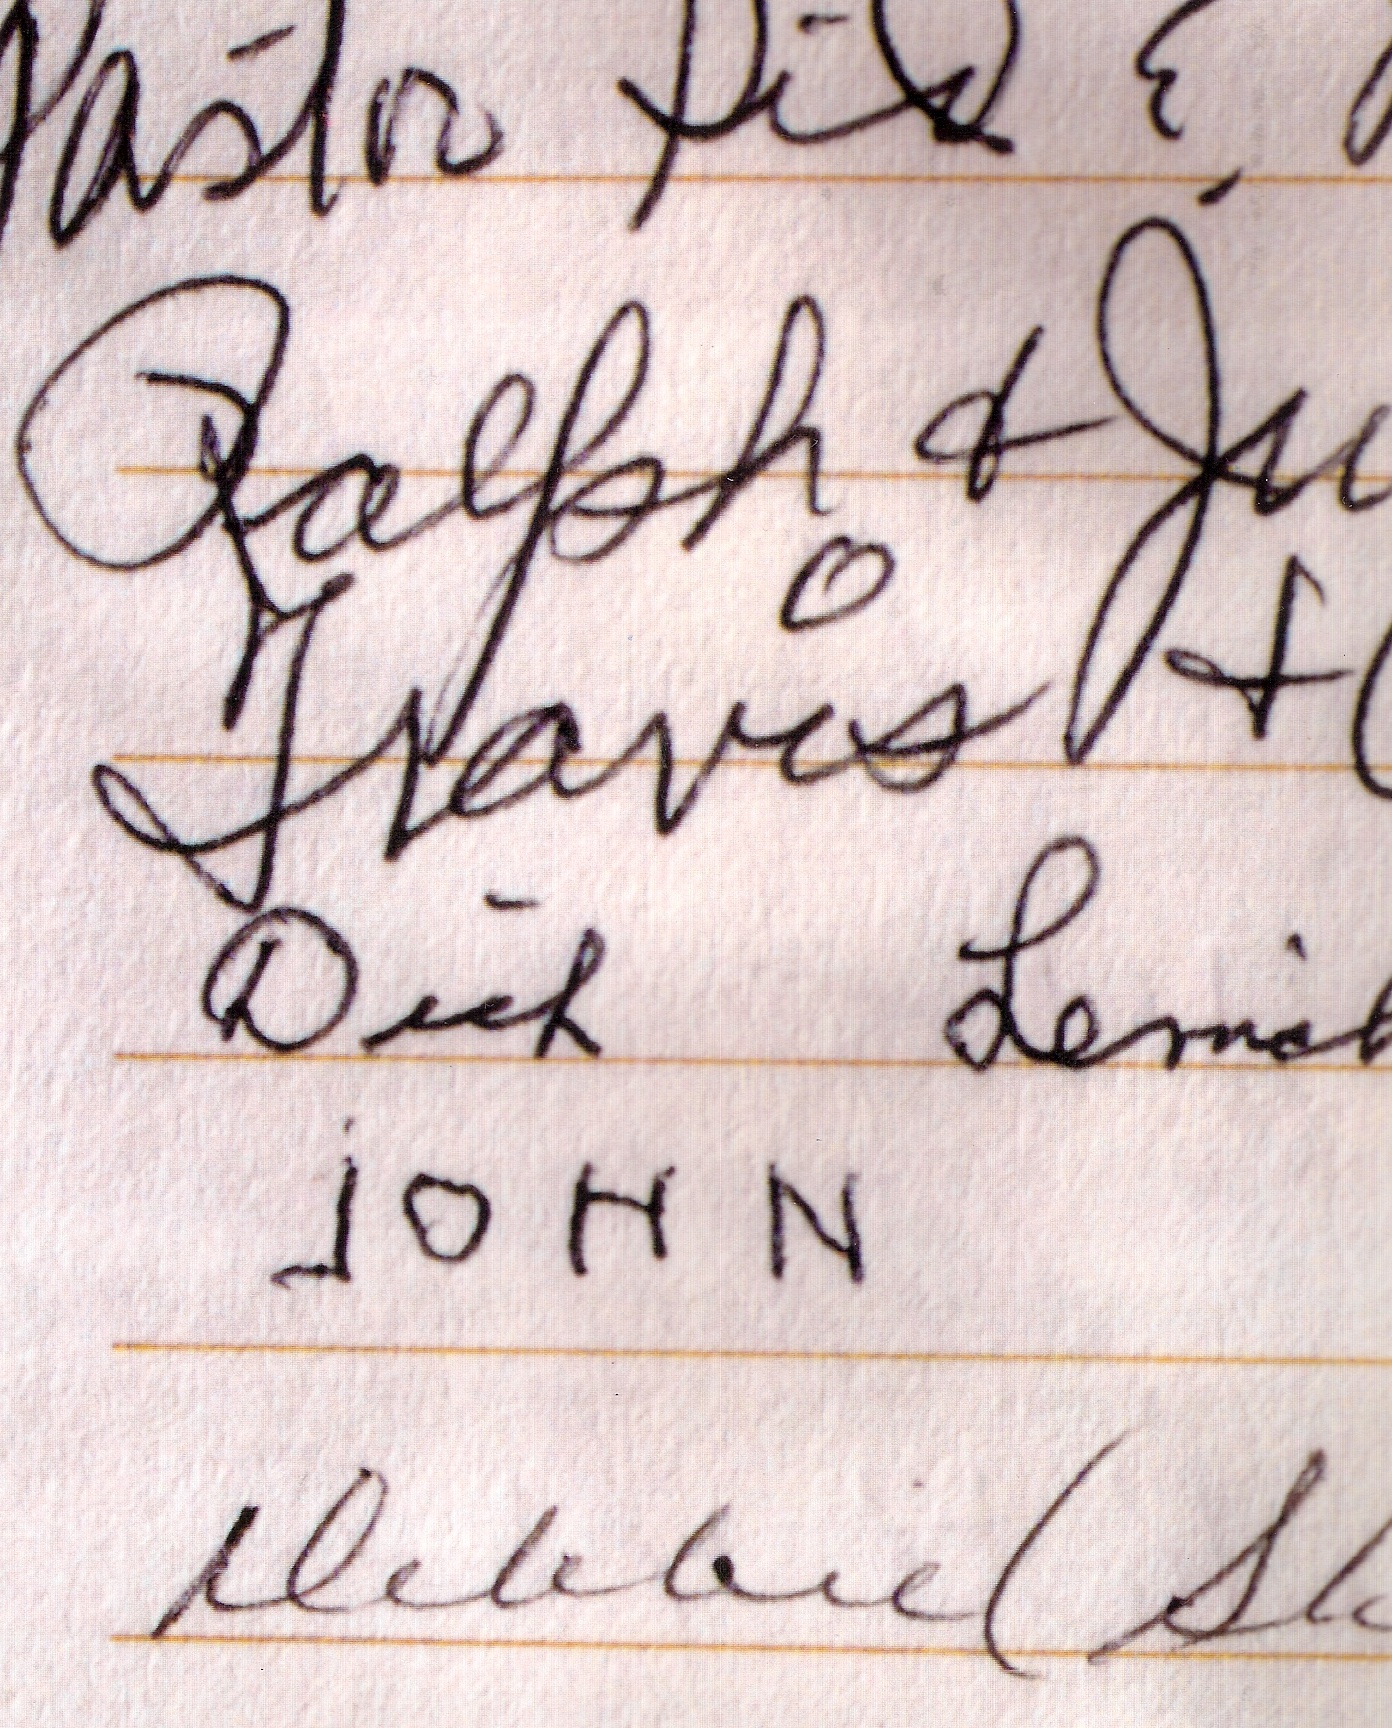 Pastor &
Ralph & Ju
Travis + 
Dick Lemich
JOHN
Debbie (Sh